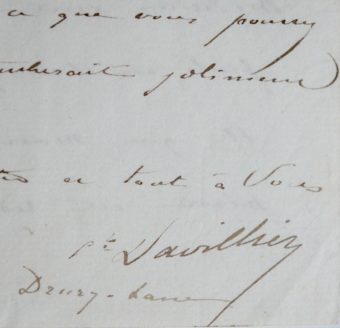 ce que vous pourrez
joliment
et tout à Vous
Davillier
Drury-Lane